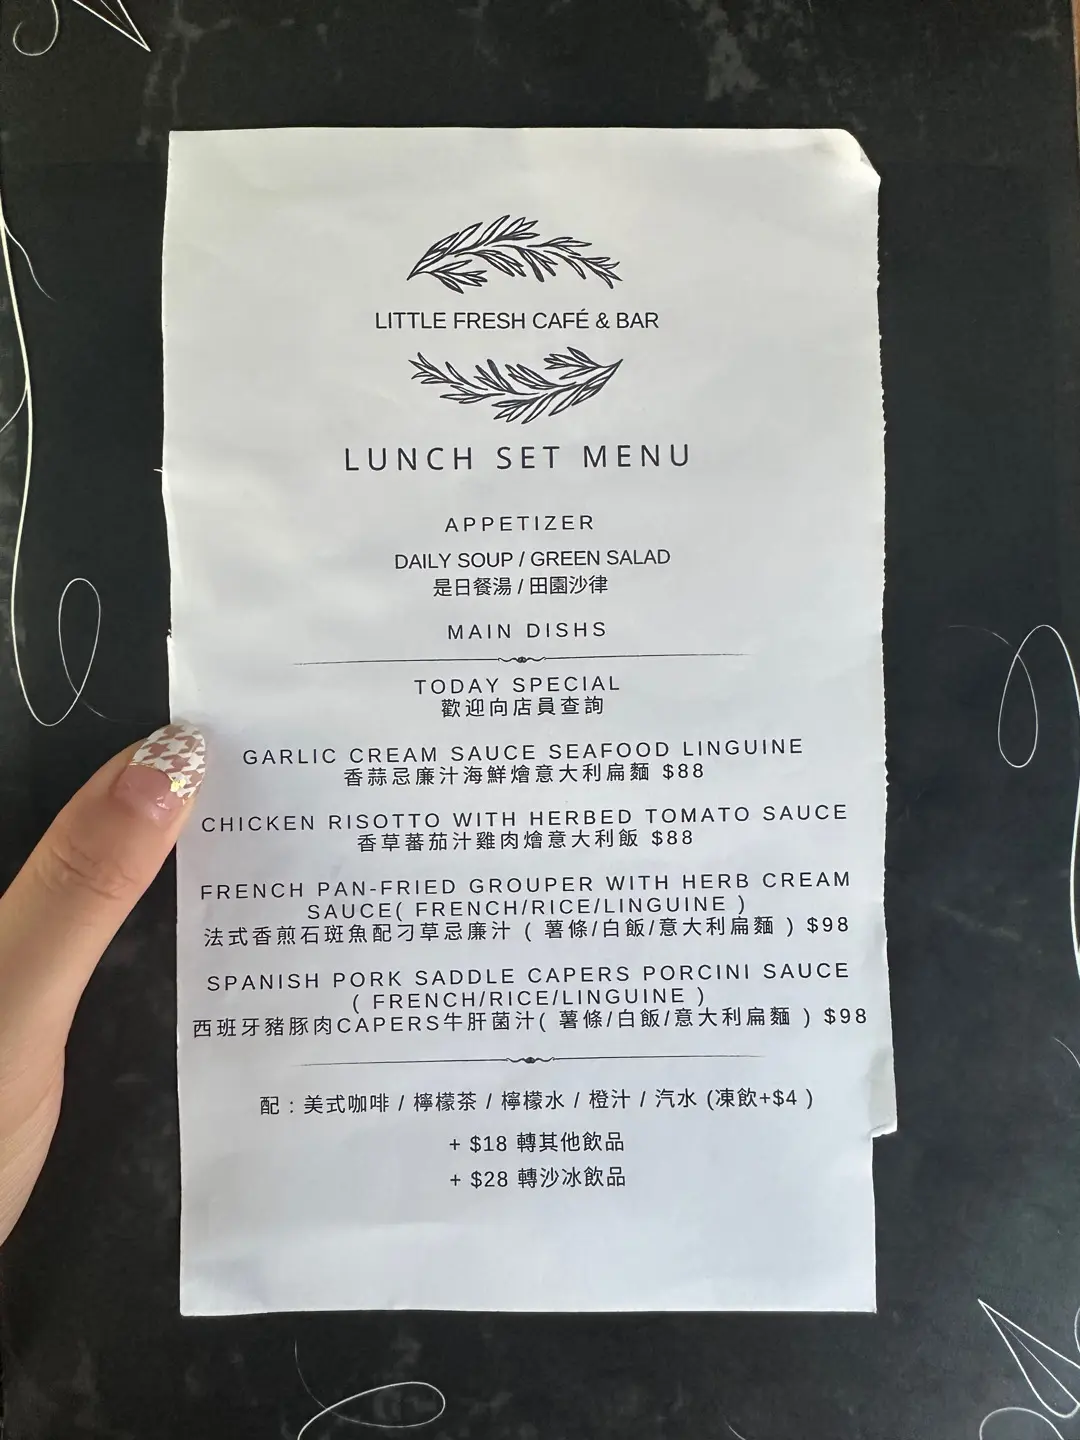 LITTLE FRESH CAFÉ & BAR
LUNCH SET MENU
APPETIZER
DAILY SOUP / GREEN SALAD
是日餐湯 / 田園沙律
MAIN DISHS
TODAY SPECIAL
歡迎向店員查詢
GARLIC CREAM SAUCE SEAFOOD LINGUINE
香蒜忌廉汁海鮮燴意大利扁麵 $88
CHICKEN RISOTTO WITH HERBED TOMATO SAUCE
香草蕃茄汁雞肉燴意大利飯 $88
FRENCH PAN-FRIED GROUPER WITH HERB CREAM
SAUCE( FRENCH/RICE/LINGUINE )
法式香煎石斑魚配刁草忌廉汁 ( 薯條/白飯/意大利扁麵 ) $98
SPANISH PORK SADDLE CAPERS PORCINI SAUCE
( FRENCH/RICE/LINGUINE )
西班牙豬豚肉CAPERS牛肝菌汁( 薯條/白飯/意大利扁麵 ) $98
配 : 美式咖啡 / 檸檬茶 / 檸檬水 / 橙汁 / 汽水 (凍飲+$4 )
+ $18 轉其他飲品
+ $28 轉沙冰飲品